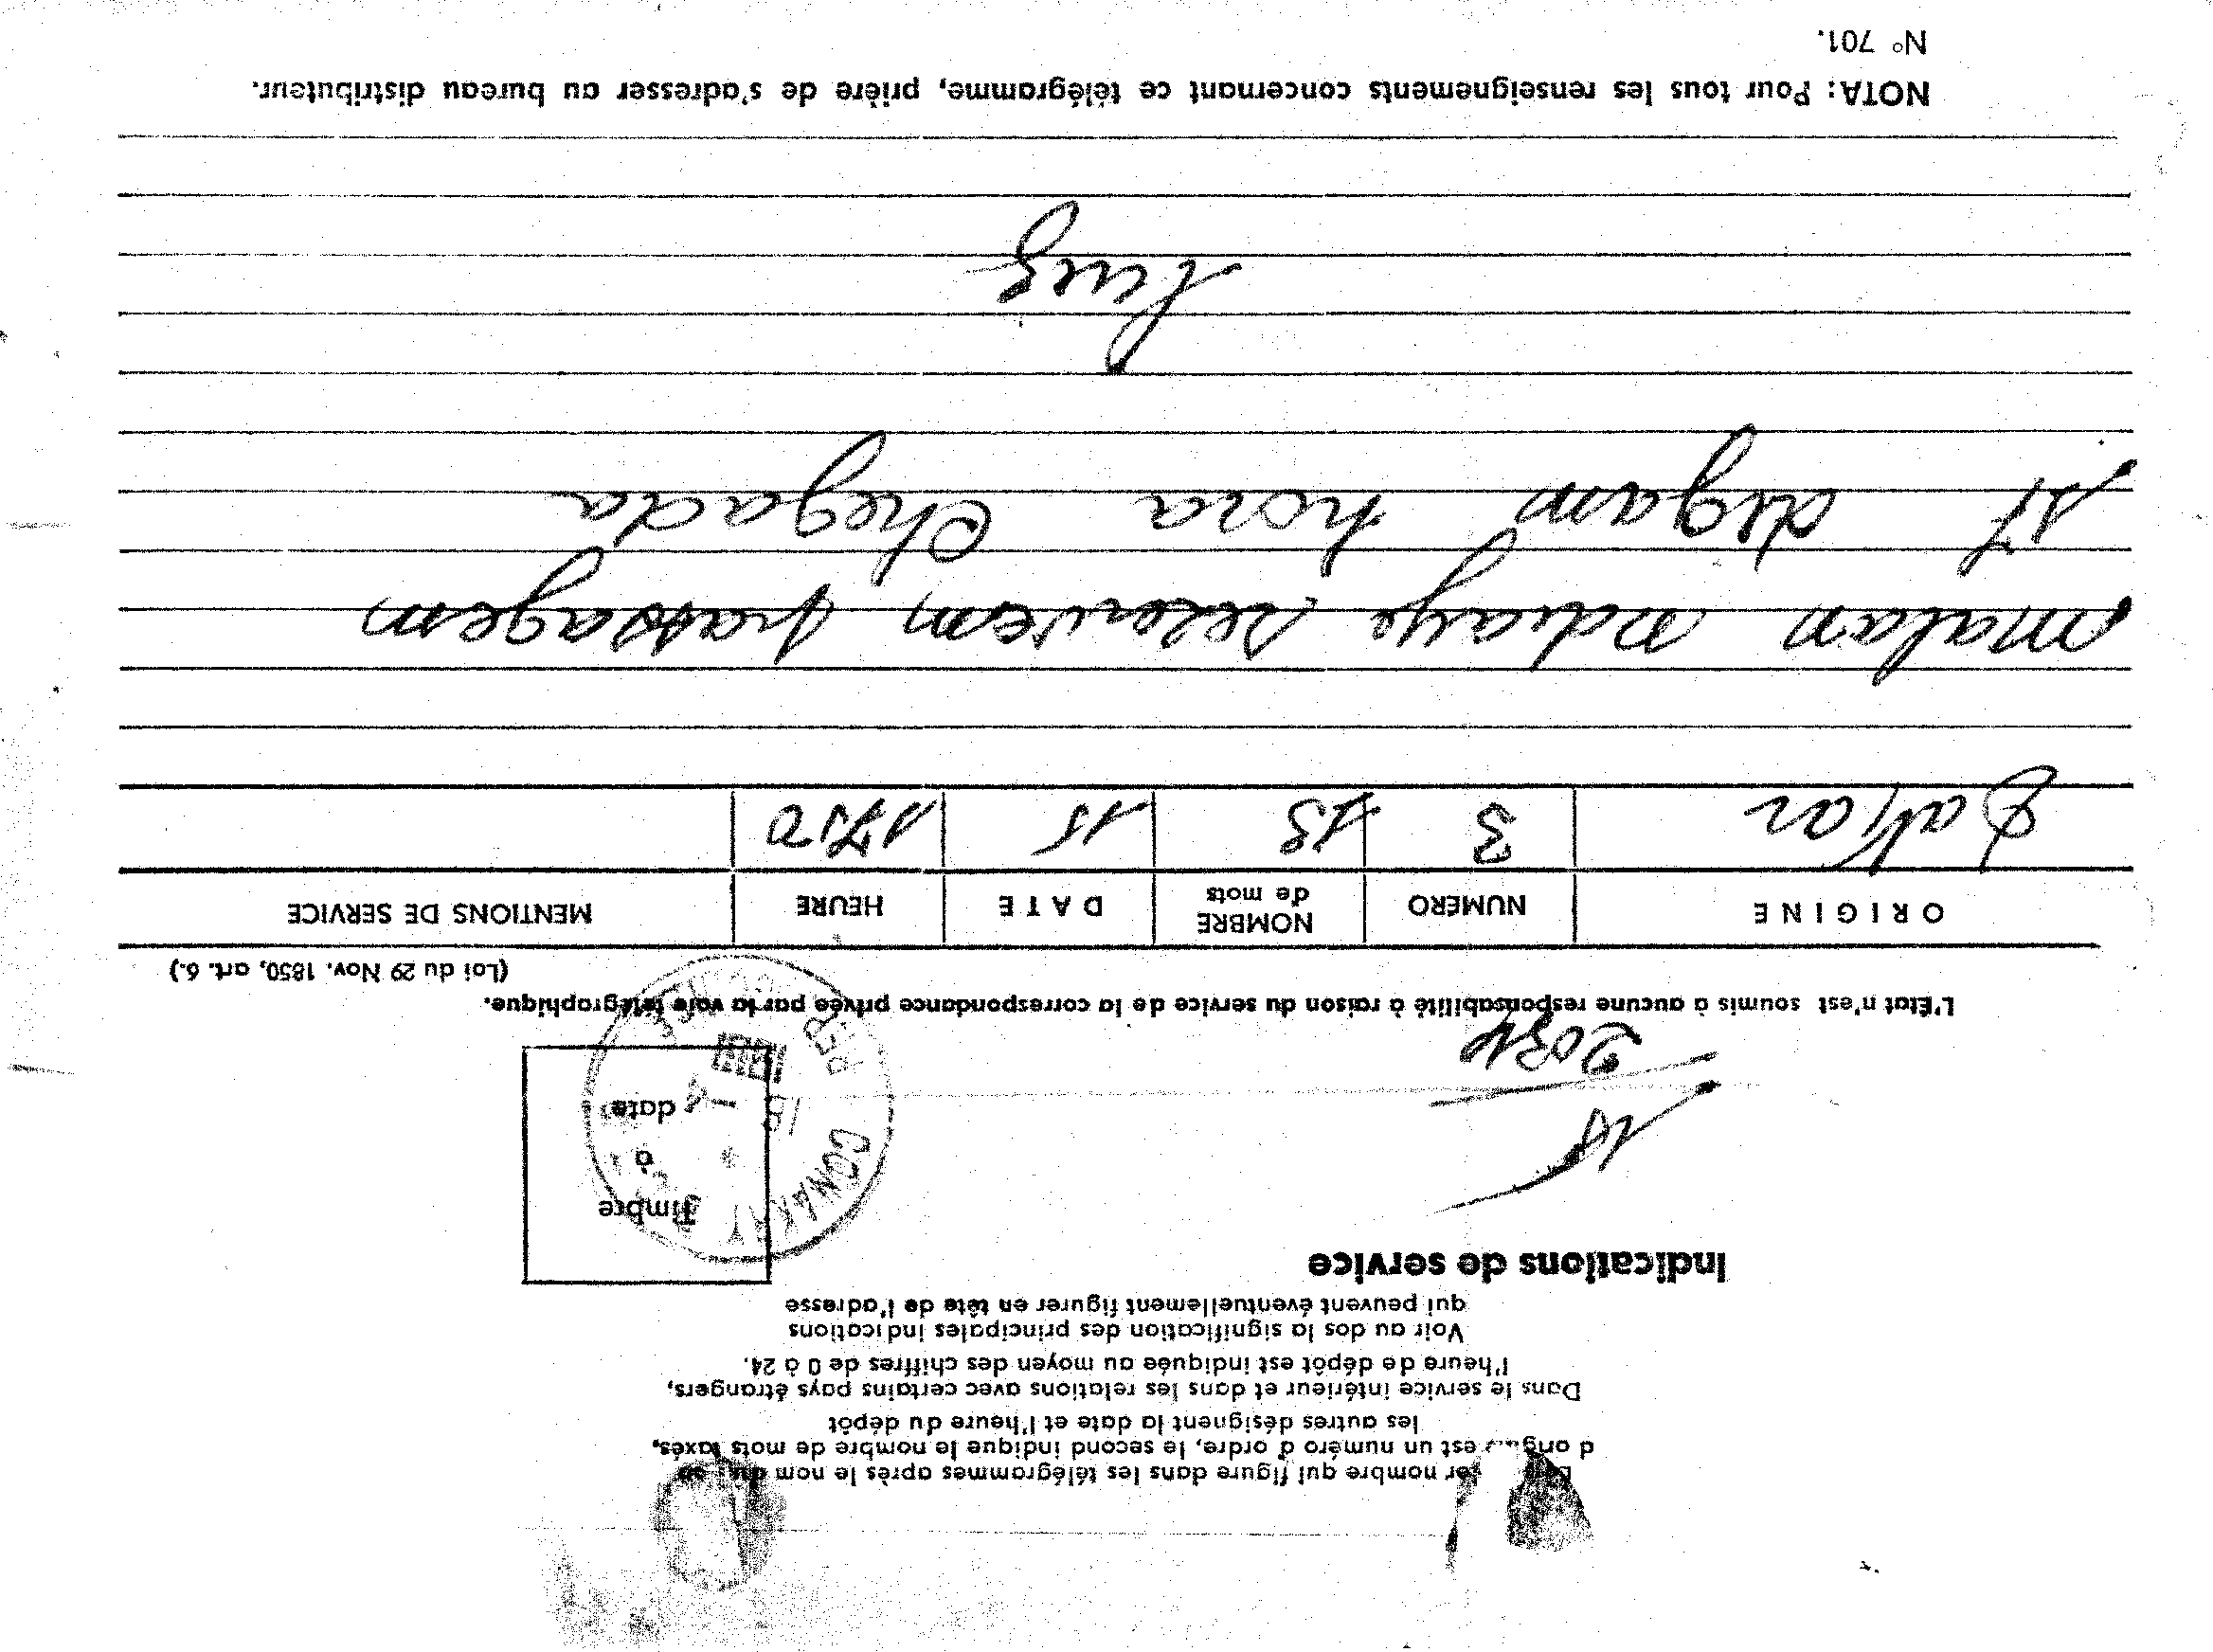 nombre qui figure dans les télégrammes après le nom
est un numéro d'ordre, le second indique le nombre de mots taxés,
les autres désignent la date et l'heure du dépôt
Dans le service intérieur et dans les relations avec certains pays étrangers,
l'heure de dépôt est indiquée au moyen des chiffres de 0 à 24.
Voir au dos la signification des principales indications
qui peuvent éventuellement figurer en tête de l'adresse
Indications de service
Timbre
à
date
CONAKRY
L'État n'est soumis à aucune responsabilité à raison du service de la correspondance privée par la voie télégraphique.
(Loi du 29 Nov. 1850, art. 6.)
ORIGINE NUMERO NOMBRE de mots DATE HEURE MENTIONS DE SERVICE
Dakar 3 13 15 1750
malan ndiaye passagem
17 digam hora chegada
Luiz
NOTA: Pour tous les renseignements concernant ce télégramme, prière de s'adresser au bureau distributeur.
N° 701.